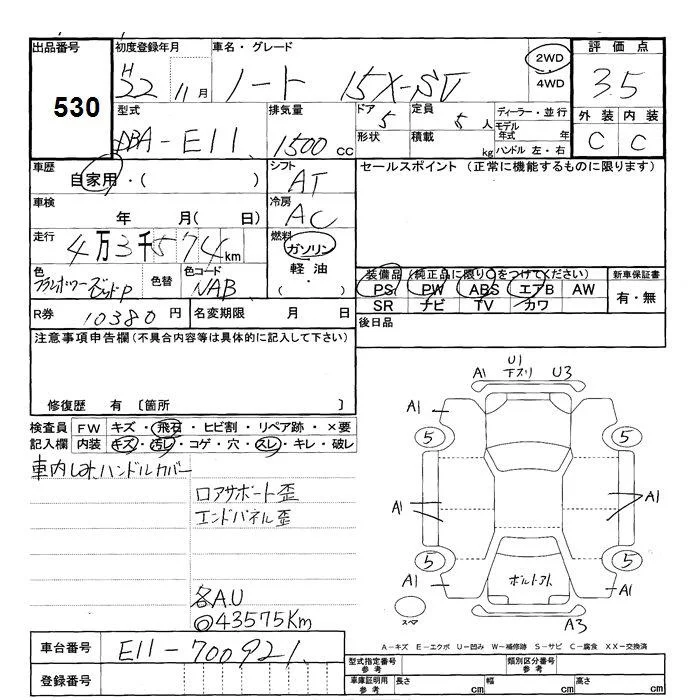 出品番号 初度登録年月 車名・グレード 評価点
530 H22 11月 ノート 15X-SV 2WD 4WD 3.5
型式 排気量 ドア 定員 ディーラー・並行 外装 内装
DBA-E11 1500cc 5 5人 モデル年式 年 C C
形状 積載 kg ハンドル 左・右
車歴 シフト セールスポイント (正常に機能するものに限ります)
自家用・( ) AT
車検 冷房
年 月( 日) AC
走行 燃料
4万3千574km ガソリン
軽油
色 色替 色コード ・ 装備品 (純正品に限り○をつけてください) 新車保証書
NAB ( ) PS PW ABS エアB AW 有・無
SR ナビ TV カワ
R券 10380円 名変期限 月 日 後日品
注意事項申告欄(不具合内容等は具体的に記入して下さい)
修復歴 有 〔箇所 〕
検査員 FW キズ・飛石・ヒビ割・リペア跡・×要
記入欄 内装 キズ・汚レ・コゲ・穴・スレ・キレ・破レ
車内しみ、ハンドルカバー
ロアサポート歪
エンドパネル歪
各A.U
◎43575Km
U1
A1 下スリ U3
A1
5 5
A1 A1
5 5
A1 ボルトアト A1
スペア A3
A-キズ E-エクボ U-凹み W-補修跡 S-サビ C-腐食 XX-交換済
車台番号 E11-700921
型式指定番号 参考 類別区分番号 参考
登録番号 車庫証明用 参考 長さ cm 幅 cm 高さ cm